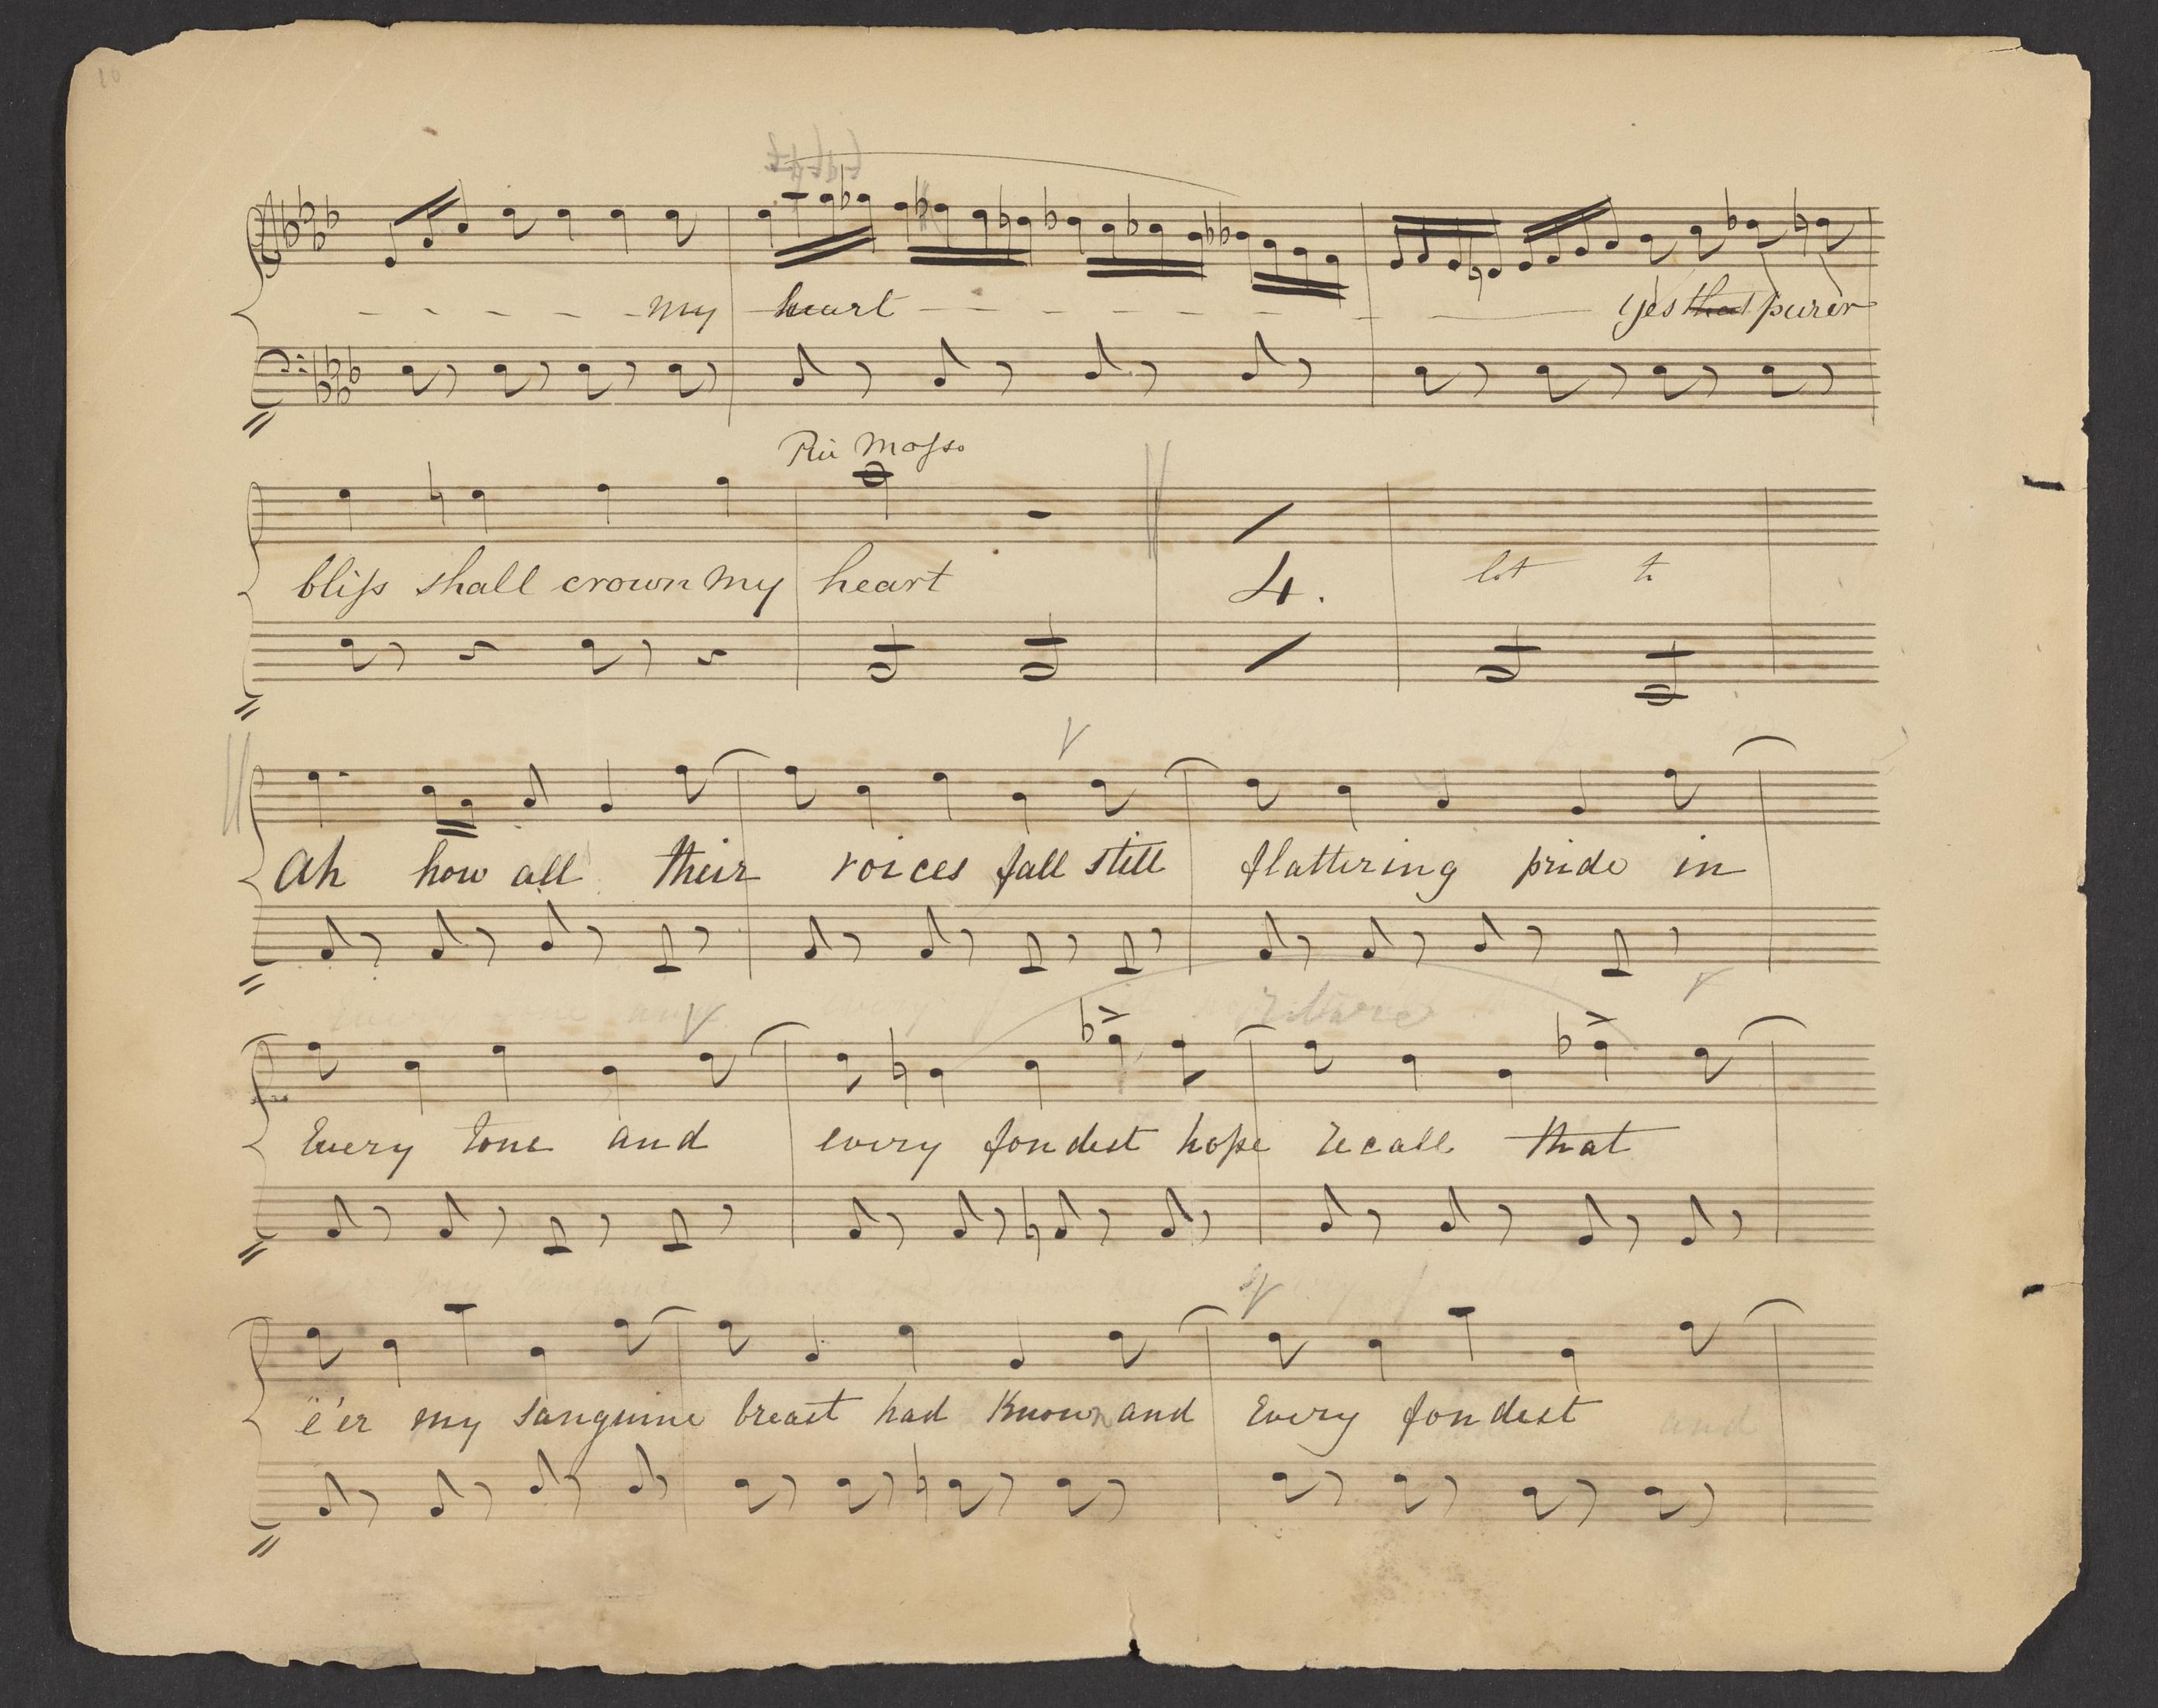 10
my heart yes that purer
Più Mosso
bliſs shall crown my heart 4.
Ah how all their voices fall still flattering pride in
Every tone and every fondest hope recall that
e'er my sanguine breast had known and Every fondest and